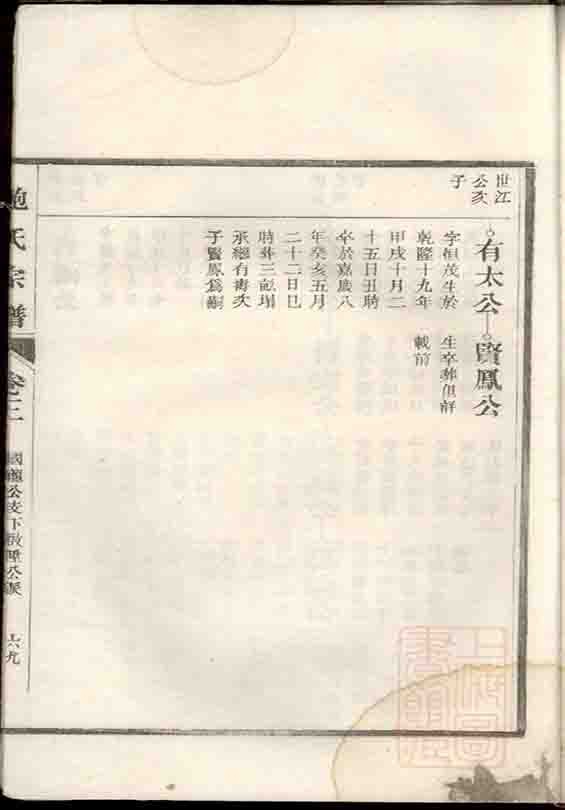 世江
公次
子
有太公 賢鳳公
字恒茂生於
乾隆十九年
甲戌十月二
十五日丑時
卒於嘉慶八
年癸亥五月
二十二日巳
時葬三畝塌
承繼有壽次
子賢鳳為嗣
生卒葬俱詳
載前
鮑氏宗譜
卷三
公支下啟
公派
六九
上海圖
書館藏